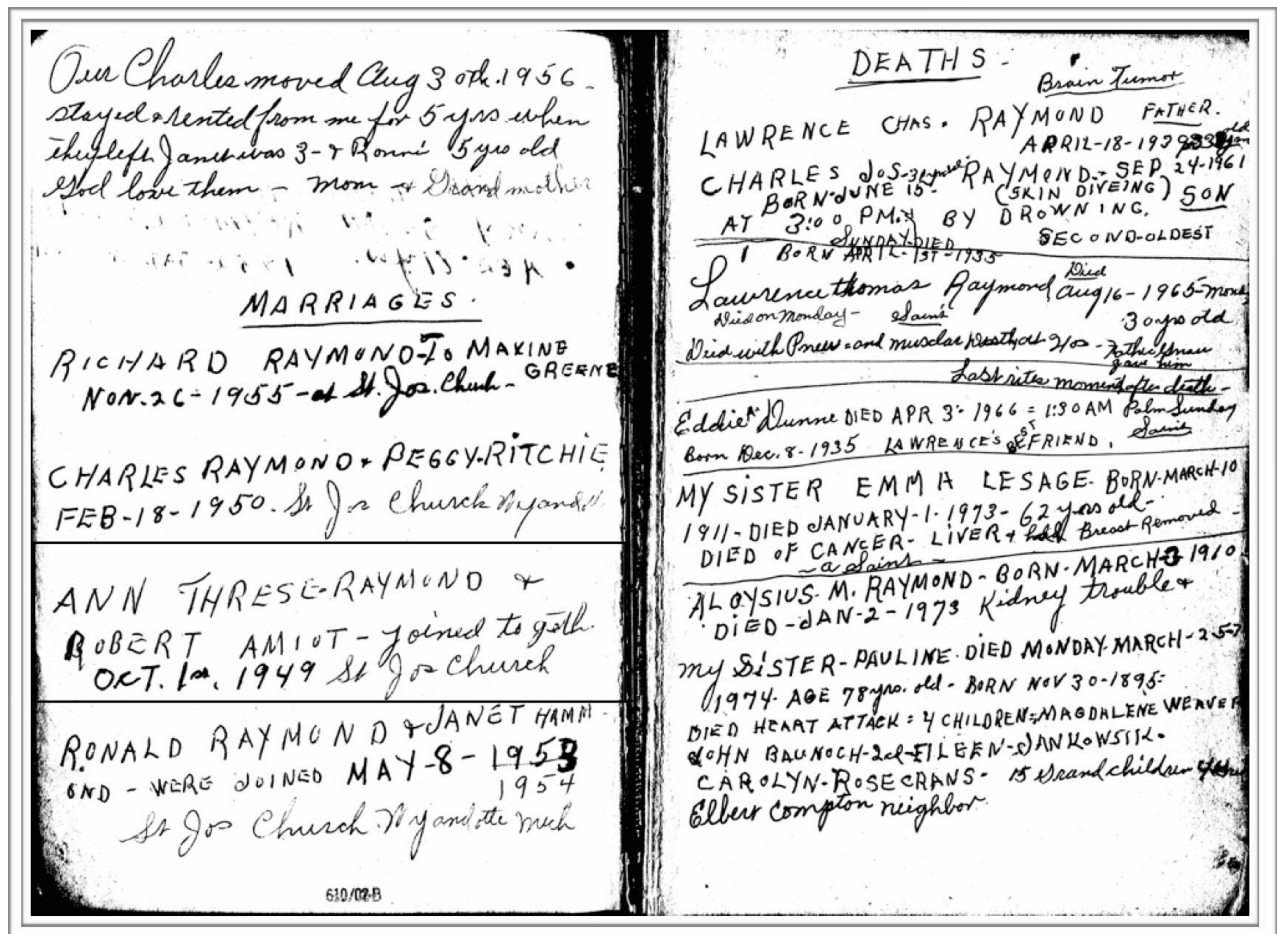 Our Charles moved Aug 30th. 1956 -
stayed & rented from me for 5 yrs when
they left Janet was 3 - & Ronni 5 yrs old
God love them - Mom & Grandmother
MARRIAGES.
RICHARD RAYMOND - To MAXINE
GREENE
NOV. 26 - 1955 - at St. Jos. Church -
CHARLES RAYMOND & PEGGY RITCHIE
FEB - 18 - 1950. St Jos Church Wyandotte
ANN THRESE - RAYMOND &
ROBERT AMIOT - joined togeth.
OCT. 1st, 1949 St Jos Church
RONALD RAYMOND & JANET HAMM -
OND - WERE JOINED MAY - 8 - 1953
1954
St Jos Church Wyandotte Mich
610/02-B
DEATHS -
Brain Tumor
LAWRENCE CHAS. RAYMOND FATHER.
APRIL - 18 - old
CHARLES JOS - RAYMOND. - SEP. 24 - 1961
BORN JUNE 15 - (SKIN DIVEING) SON
AT 3:00 PM. BY DROWNING.
SUNDAY DIED SECOND - OLDEST
BORN APRIL - 1ST - 1935
Lawrence thomas Raymond Died Aug 16 - 1965 - Mond
Died on Monday - Saint 30 yrs old
Died with Pneu - and muscular - Father
gave him
Last rites moment after death -
Eddie Dunne DIED APR 3 - 1966 = 1:30 AM Palm Sunday
Born Dec. 8 - 1935 LAWRENCE'S BEST FRIEND. Saint
MY SISTER EMMA LESAGE. BORN - MARCH - 10
1911 - DIED JANUARY - 1 - 1973 - 62 yrs old -
DIED OF CANCER - LIVER & had Breast Removed -
- a Saint -
ALOYSIUS. M. RAYMOND - BORN - MARCH - 3 1910
DIED - JAN - 2 - 1973 Kidney trouble &
My SISTER - PAULINE. DIED MONDAY. MARCH - 25 -
1974. AGE 78 yrs. old - BORN NOV 30 - 1895 -
DIED HEART ATTACK = 4 CHILDREN = MAGDALENE WEAVER
JOHN BAUNOCH - 2d - EILEEN - JANKOWSIK.
CAROLYN - ROSECRANS - 15 Grand children
Elbert Compton neighbor.